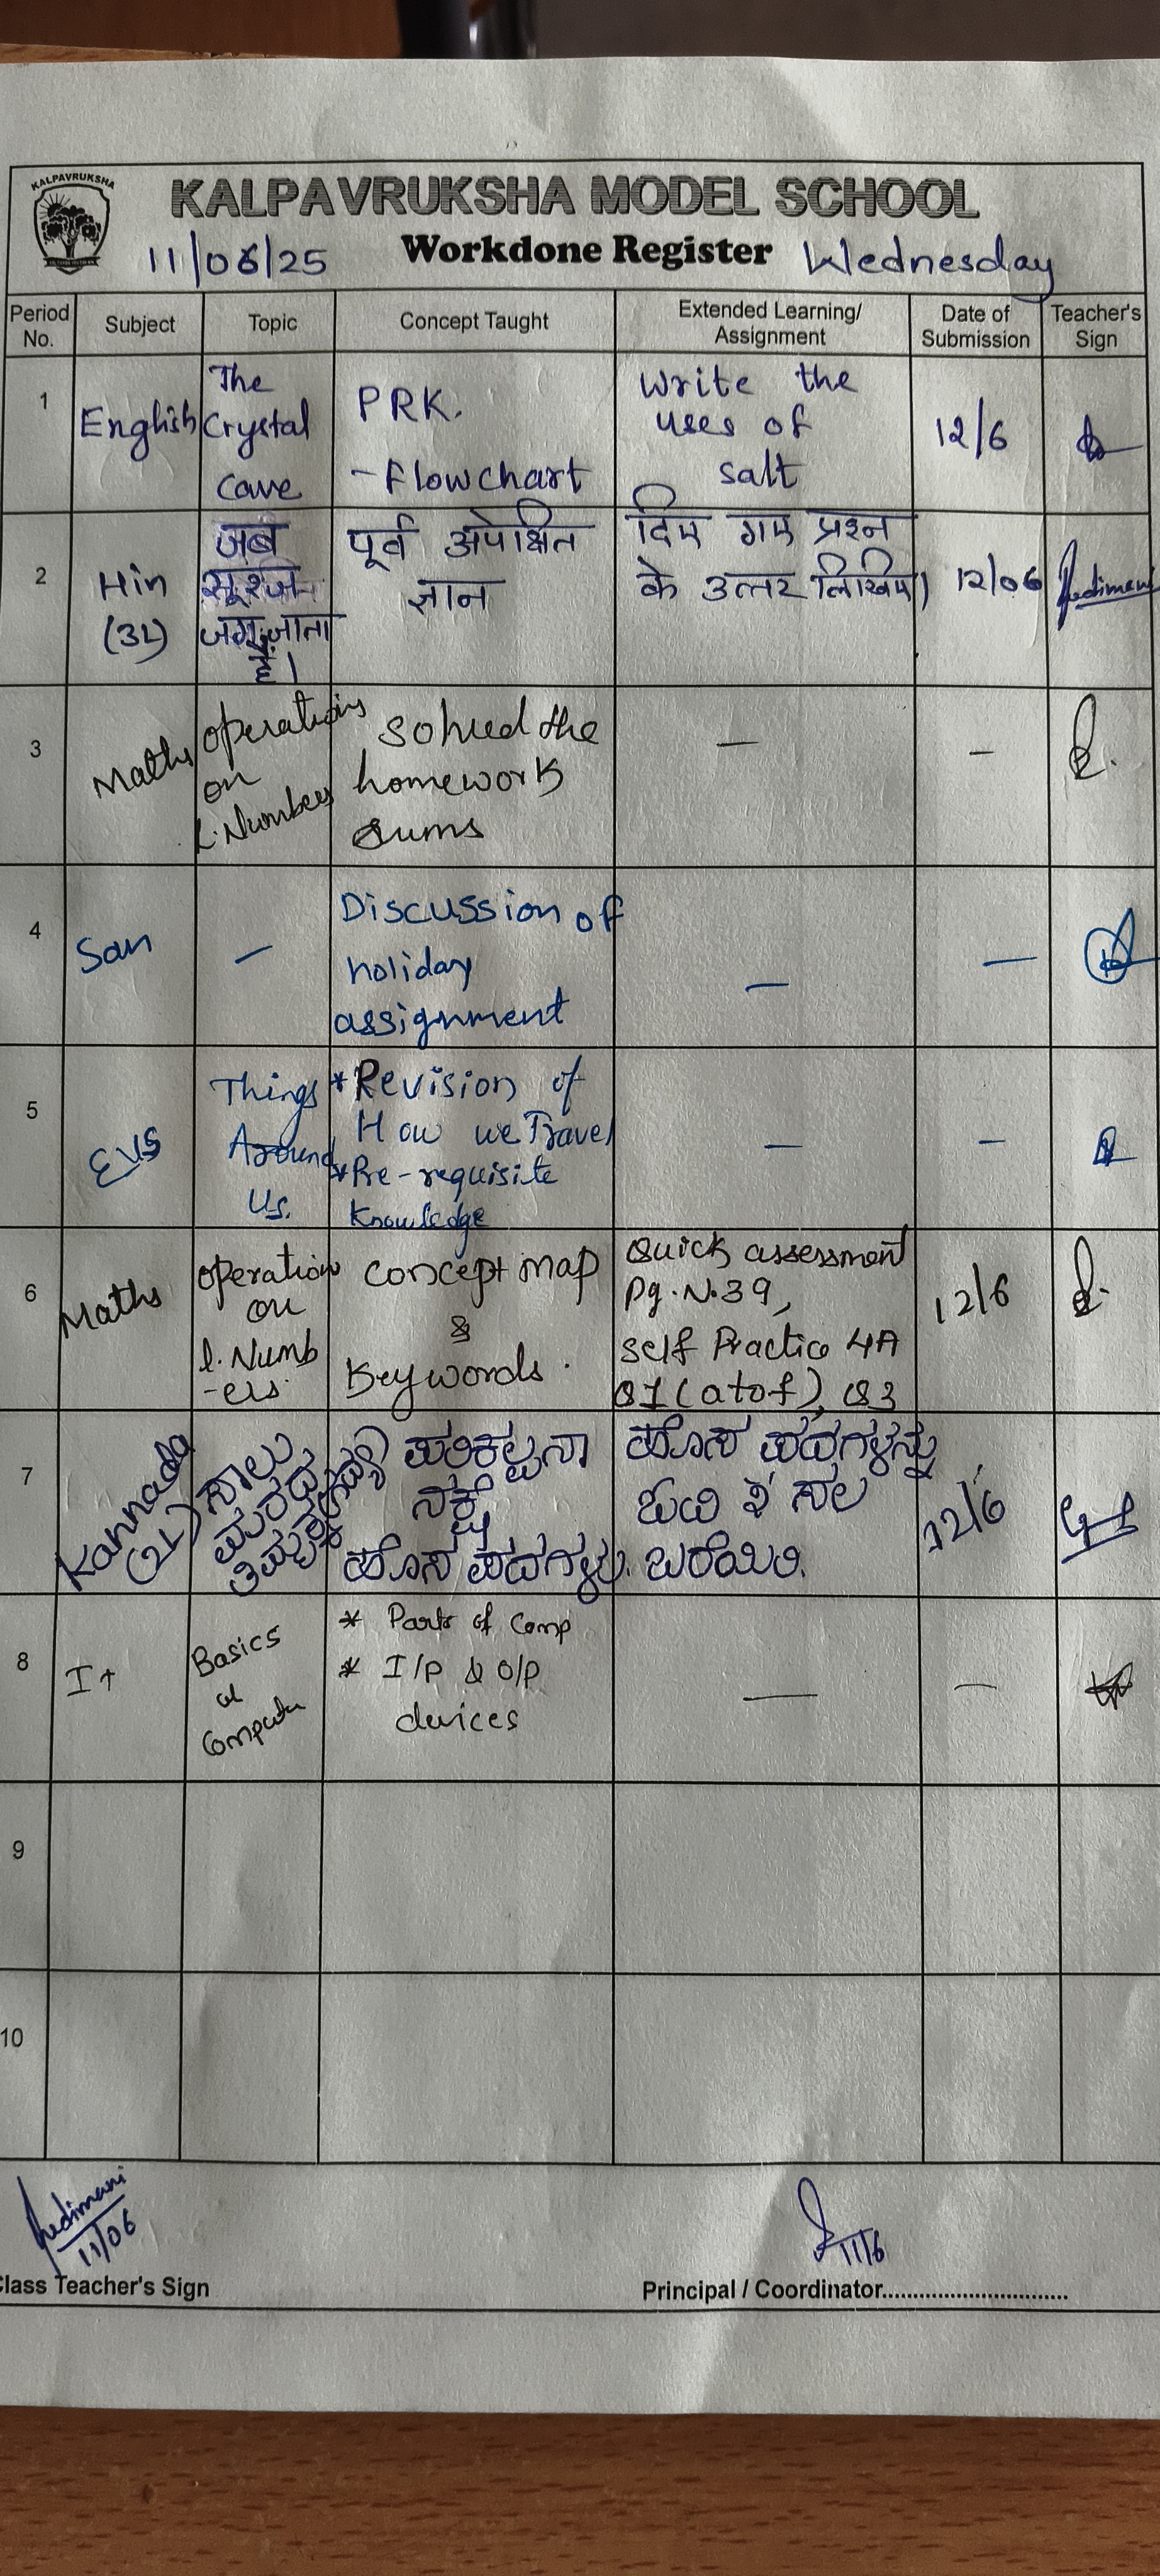 KALPAVRUKSHA
KALPAVRUKSHA MODEL SCHOOL
11/06/25 Workdone Register Wednesday
Period No. Subject Topic Concept Taught Extended Learning/ Assignment Date of Submission Teacher's Sign
1 English The Crystal Cave PRK. - Flowchart Write the uses of salt 12/6
2 Hin (3L) जब सूरज जग जाता है। पूर्व अपेक्षित ज्ञान दिए गए प्रश्न के उत्तर लिखिए। 12/06
3 Maths operations on L.Numbers solved the homework sums — —
4 San — Discussion of holiday assignment — —
5 EVS Things Around Us. * Revision of How we Travel * Pre-requisite Knowledge — —
6 Maths operation on l.Numb -ers. concept map & Keywords. Quick assessment Pg.N.39, Self Practice 4A Q1 (a to f), Q3 12/6
7 Kannada (2L) ಸಾಲು ಮರದ ತಿಮ್ಮಕ್ಕ ಪರಿಕಲ್ಪನಾ ನಕ್ಷೆ ಹೊಸ ಪದಗಳು. ಹೊಸ ಪದಗಳನ್ನು ಶುದ್ಧ ಸಲ ಬರೆಯಿರಿ. 12/6
8 It Basics of Computer * Parts of Comp * I/P & O/P devices — —
9
10
11/06
11/6
Class Teacher's Sign Principal / Coordinator..............................